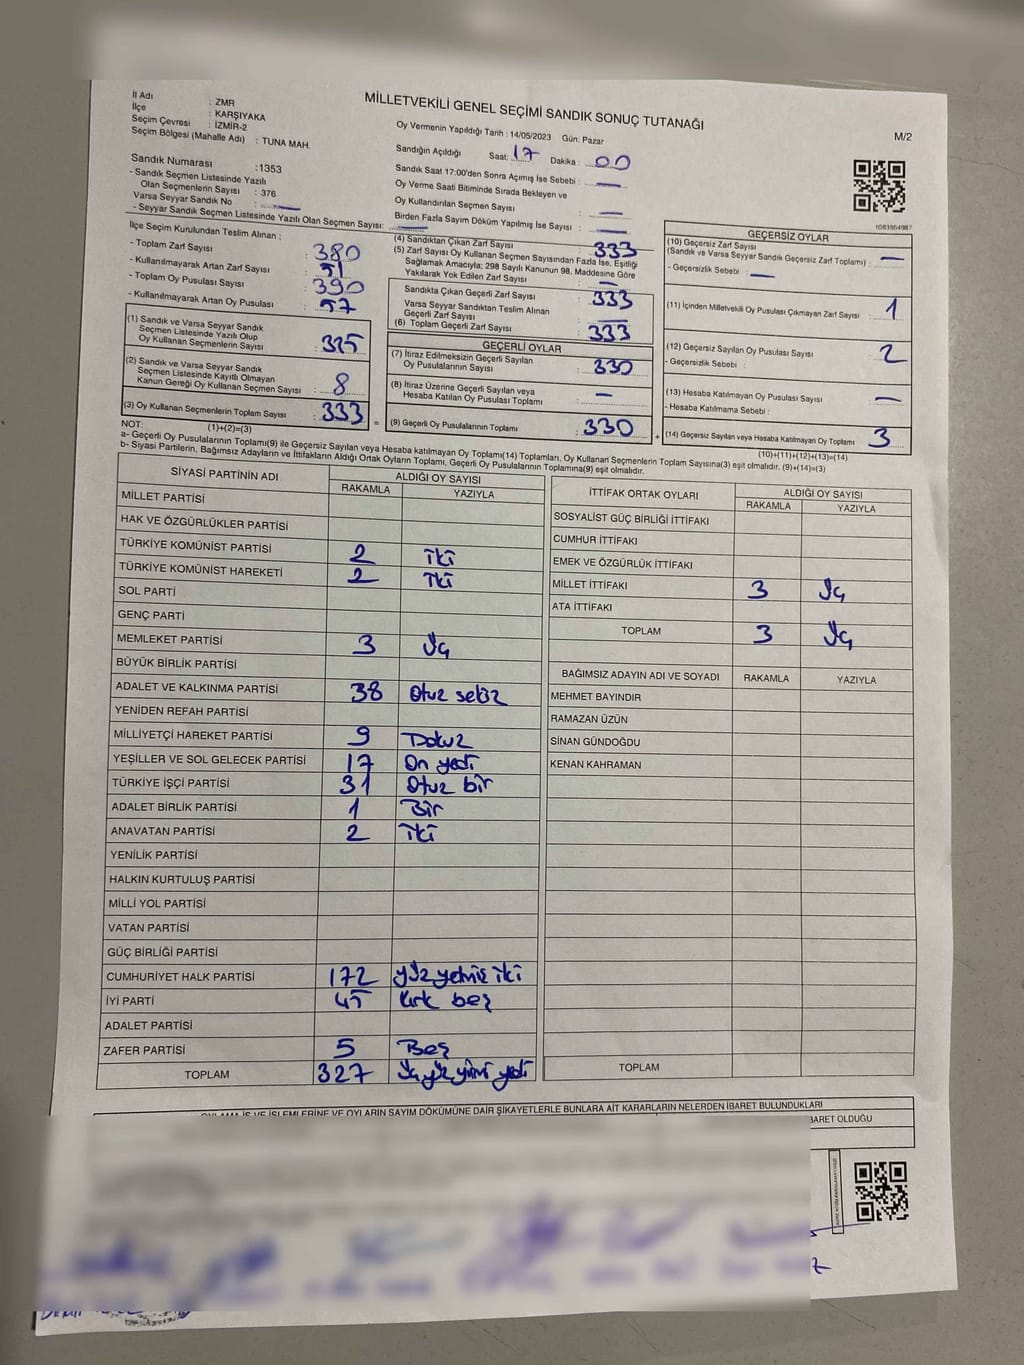 MİLLETVEKİLİ GENEL SEÇİMİ SANDIK SONUÇ TUTANAĞI
M/2
İl Adı : ZMR
İlçe : KARŞIYAKA
Seçim Çevresi : İZMİR-2
Seçim Bölgesi (Mahalle Adı) : TUNA MAH.
Sandık Numarası : 1353
- Sandık Seçmen Listesinde Yazılı
Olan Seçmenlerin Sayısı : 376
Varsa Seyyar Sandık No :
- Seyyar Sandık Seçmen Listesinde Yazılı Olan Seçmen Sayısı:
Oy Vermenin Yapıldığı Tarih : 14/05/2023 Gün: Pazar
Sandığın Açıldığı Saat: 17 Dakika : 00
Sandık Saat 17:00'den Sonra Açımış İse Sebebi :
Oy Verme Saati Bitiminde Sırada Bekleyen ve
Oy Kullandırılan Seçmen Sayısı :
Birden Fazla Sayım Döküm Yapılmış İse Sayısı :
1083864987
İlçe Seçim Kurulundan Teslim Alınan :
- Toplam Zarf Sayısı : 380
- Kullanılmayarak Artan Zarf Sayısı :
- Toplam Oy Pusulası Sayısı : 390
- Kullanılmayarak Artan Oy Pusulası : 57
(1) Sandık ve Varsa Seyyar Sandık
Seçmen Listesinde Yazılı Olup
Oy Kullanan Seçmenlerin Sayısı : 325
(2) Sandık ve Varsa Seyyar Sandık
Seçmen Listesinde Kayıtlı Olmayan
Kanun Gereği Oy Kullanan Seçmen Sayısı : 8
(3) Oy Kullanan Seçmenlerin Toplam Sayısı : 333
(1)+(2)=(3)
(4) Sandıktan Çıkan Zarf Sayısı 333
(5) Zarf Sayısı Oy Kullanan Seçmen Sayısından Fazla İse, Eşitliği
Sağlamak Amacıyla; 298 Sayılı Kanunun 98. Maddesine Göre
Yakılarak Yok Edilen Zarf Sayısı : —
Sandıkta Çıkan Geçerli Zarf Sayısı : 333
Varsa Seyyar Sandıktan Teslim Alınan
Geçerli Zarf Sayısı :
(6) Toplam Geçerli Zarf Sayısı : 333
GEÇERLİ OYLAR
(7) İtiraz Edilmeksizin Geçerli Sayılan
Oy Pusulalarının Sayısı : 330
(8) İtiraz Üzerine Geçerli Sayılan veya
Hesaba Katılan Oy Pusulası Toplamı : —
= (9) Geçerli Oy Pusulalarının Toplamı : 330
GEÇERSİZ OYLAR
(10) Geçersiz Zarf Sayısı
(Sandık ve Varsa Seyyar Sandık Geçersiz Zarf Toplamı) : —
- Geçersizlik Sebebi : —
(11) İçinden Milletvekili Oy Pusulası Çıkmayan Zarf Sayısı : 1
(12) Geçersiz Sayılan Oy Pusulası Sayısı : 2
- Geçersizlik Sebebi :
(13) Hesaba Katılmayan Oy Pusulası Sayısı : —
- Hesaba Katılmama Sebebi :
+ (14) Geçersiz Sayılan veya Hesaba Katılmayan Oy Toplamı 3
(10)+(11)+(12)+(13)=(14)
NOT:
a- Geçerli Oy Pusulalarının Toplamı(9) ile Geçersiz Sayılan veya Hesaba Katılmayan Oy Toplamı(14) Toplamları, Oy Kullanan Seçmenlerin Toplam Sayısına(3) eşit olmalıdır. (9)+(14)=(3)
b- Siyasi Partilerin, Bağımsız Adayların ve İttifakların Aldığı Ortak Oyların Toplamı, Geçerli Oy Pusulalarının Toplamına(9) eşit olmalıdır.
SİYASİ PARTİNİN ADI ALDIĞI OY SAYISI
RAKAMLA YAZIYLA
MİLLET PARTİSİ
HAK VE ÖZGÜRLÜKLER PARTİSİ
TÜRKİYE KOMÜNİST PARTİSİ 2 iki
TÜRKİYE KOMÜNİST HAREKETİ 2 iki
SOL PARTİ
GENÇ PARTİ
MEMLEKET PARTİSİ 3 Üç
BÜYÜK BİRLİK PARTİSİ
ADALET VE KALKINMA PARTİSİ 38 Otuz sekiz
YENİDEN REFAH PARTİSİ
MİLLİYETÇİ HAREKET PARTİSİ 9 Dokuz
YEŞİLLER VE SOL GELECEK PARTİSİ 17 On yedi
TÜRKİYE İŞÇİ PARTİSİ 31 Otuz bir
ADALET BİRLİK PARTİSİ 1 Bir
ANAVATAN PARTİSİ 2 iki
YENİLİK PARTİSİ
HALKIN KURTULUŞ PARTİSİ
MİLLİ YOL PARTİSİ
VATAN PARTİSİ
GÜÇ BİRLİĞİ PARTİSİ
CUMHURİYET HALK PARTİSİ 172 yüz yetmiş iki
İYİ PARTİ 45 kırk beş
ADALET PARTİSİ
ZAFER PARTİSİ 5 Beş
TOPLAM 327 Üç yüz yirmi yedi
İTTİFAK ORTAK OYLARI ALDIĞI OY SAYISI
RAKAMLA YAZIYLA
SOSYALİST GÜÇ BİRLİĞİ İTTİFAKI
CUMHUR İTTİFAKI
EMEK VE ÖZGÜRLÜK İTTİFAKI
MİLLET İTTİFAKI 3 Üç
ATA İTTİFAKI
TOPLAM 3 Üç
BAĞIMSIZ ADAYIN ADI VE SOYADI RAKAMLA YAZIYLA
MEHMET BAYINDIR
RAMAZAN ÜZÜN
SİNAN GÜNDOĞDU
KENAN KAHRAMAN
TOPLAM
OYLAMA İŞ VE İŞLEMLERİNE VE OYLARIN SAYIM DÖKÜMÜNE DAİR ŞİKAYETLERLE BUNLARA AİT KARARLARIN NELERDEN İBARET BULUNDUKLARI
BARET OLDUĞU